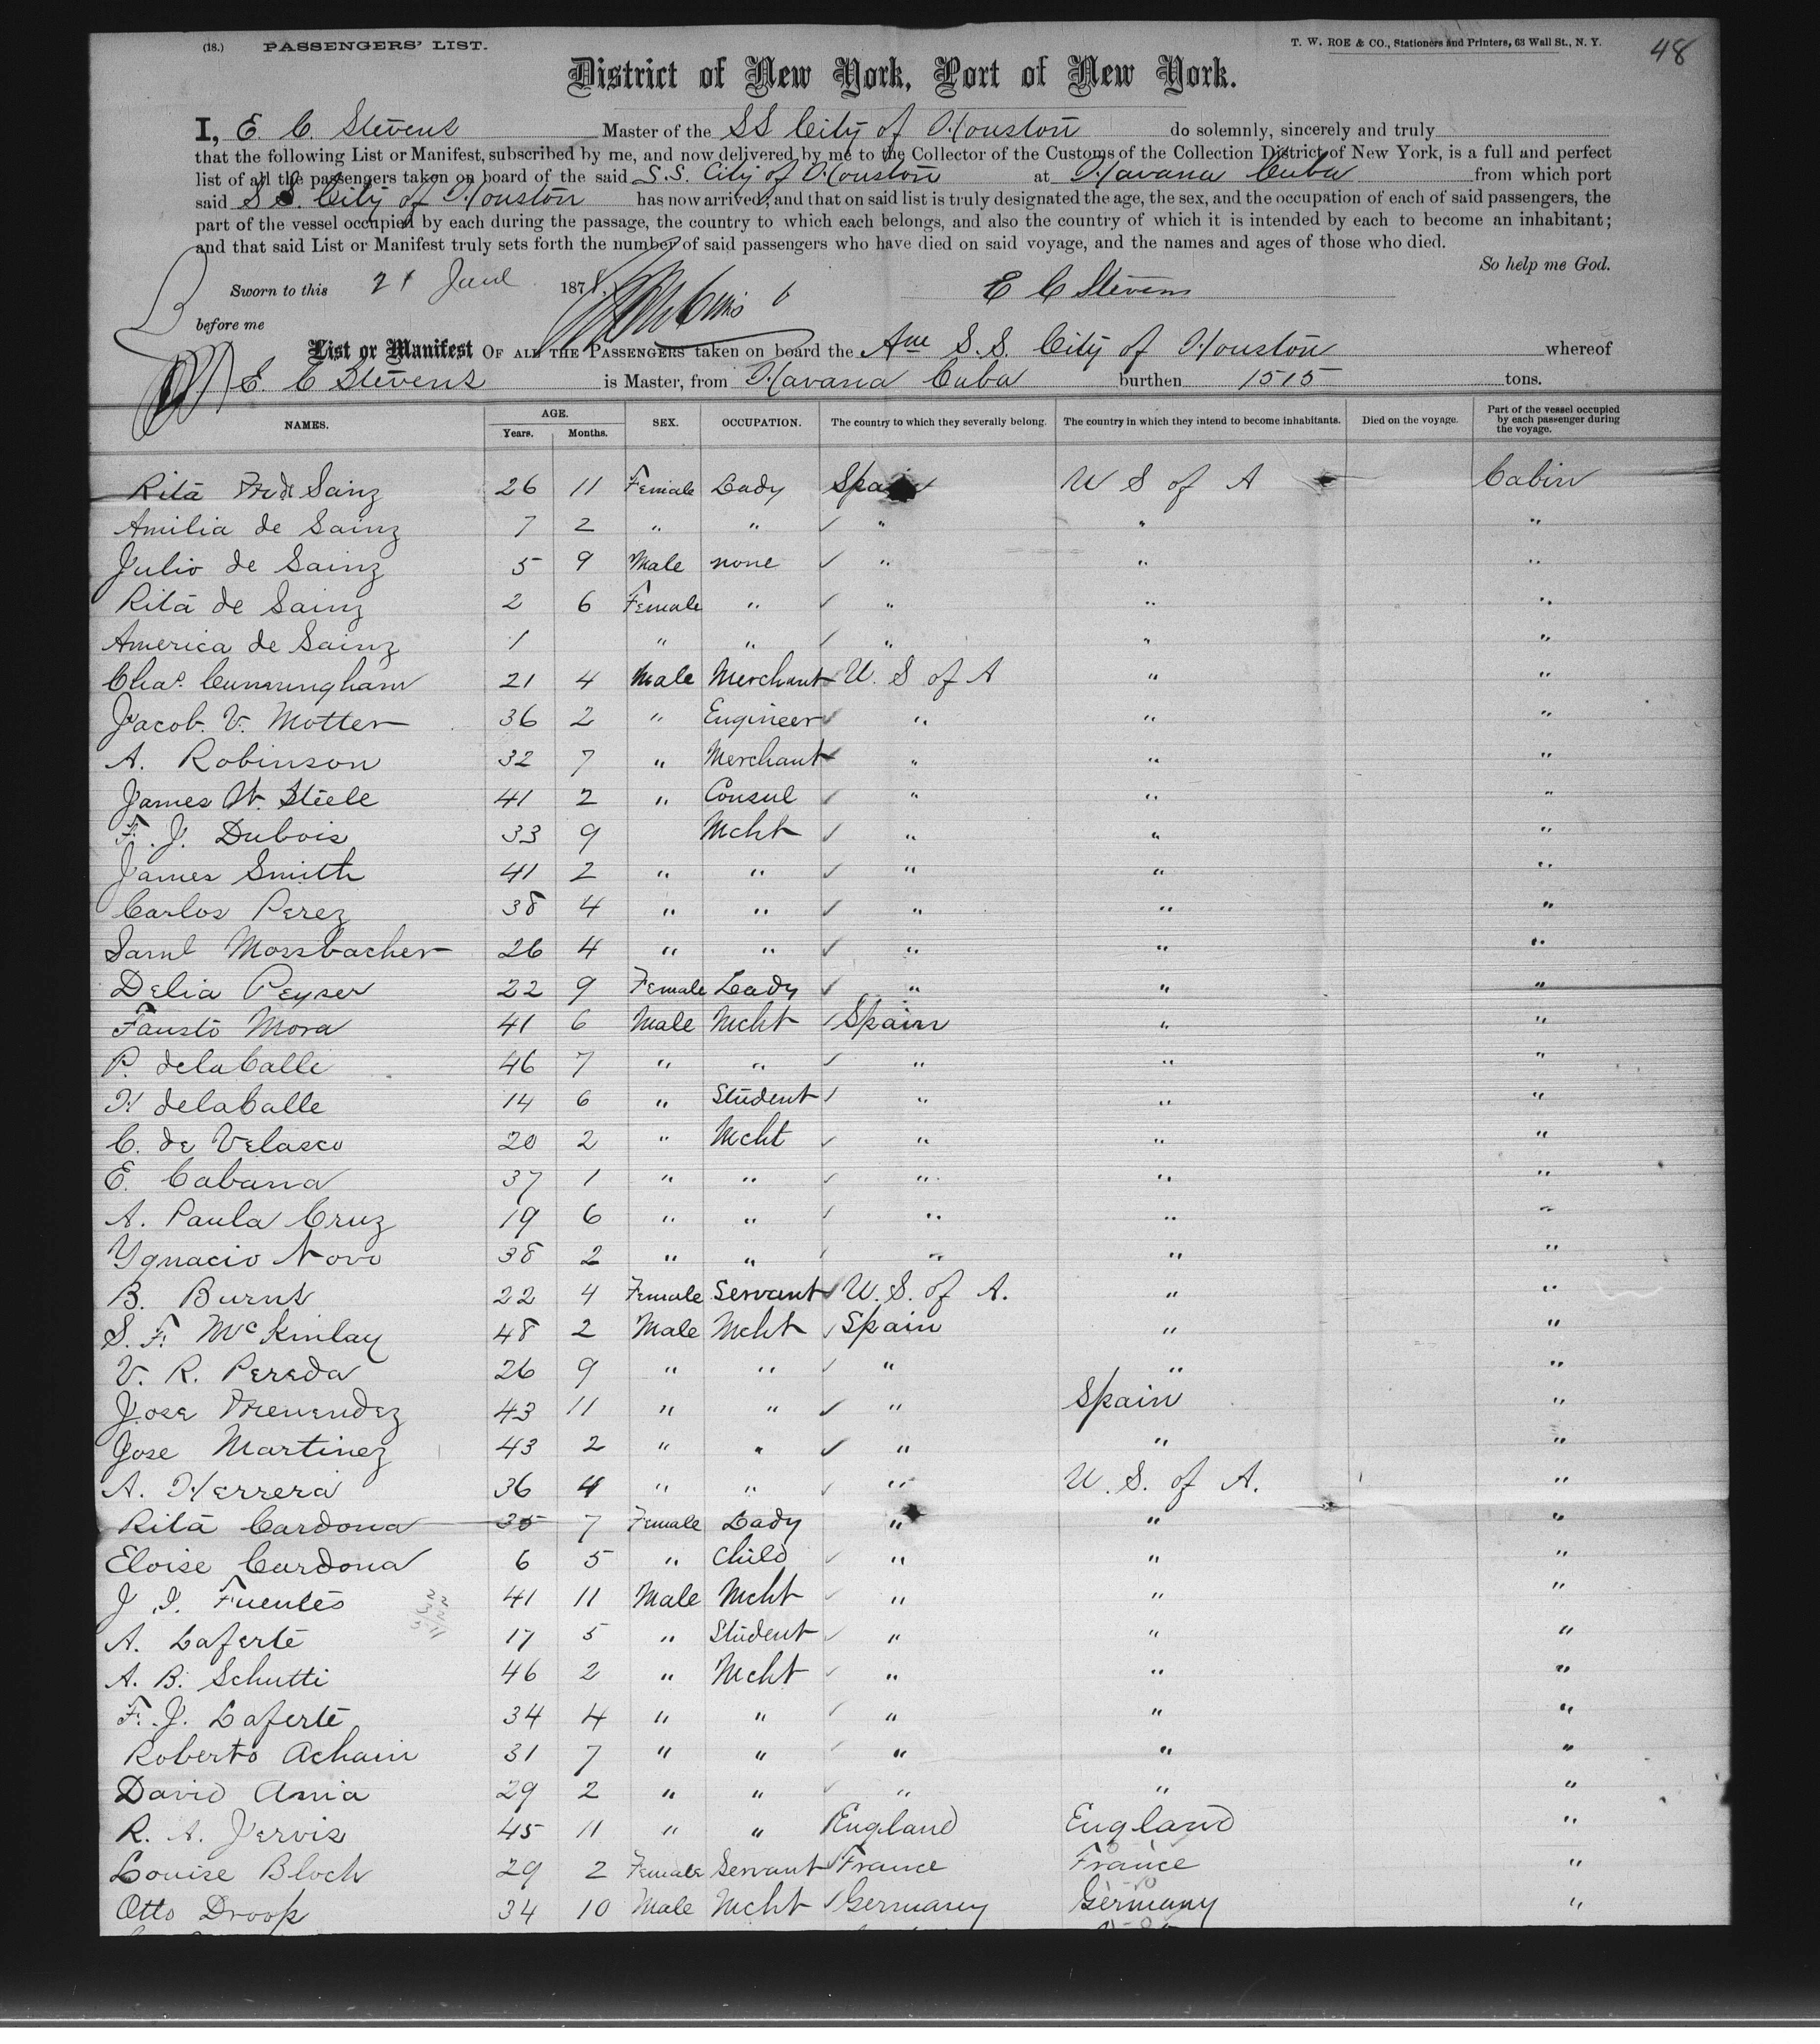 (18.) PASSENGERS' LIST. T. W. ROE & CO., Stationers and Printers, 63 Wall St., N. Y. 48
District of New York, Port of New York.
I, E. C. Stevens Master of the SS City of Houston do solemnly, sincerely and truly
that the following List or Manifest, subscribed by me, and now delivered by me to the Collector of the Customs of the Collection District of New York, is a full and perfect
list of all the passengers taken on board of the said S.S. City of Houston at Havana Cuba from which port
said S S. City of Houston has now arrived; and that on said list is truly designated the age, the sex, and the occupation of each of said passengers, the
part of the vessel occupied by each during the passage, the country to which each belongs, and also the country of which it is intended by each to become an inhabitant;
and that said List or Manifest truly sets forth the number of said passengers who have died on said voyage, and the names and ages of those who died.
So help me God.
Sworn to this 21 187 E C Stevens
before me
List or Manifest OF ALL THE PASSENGERS taken on board the Ame S.S. City of Houston whereof
E. C Stevens is Master, from Havana Cuba burthen 1515 tons.
NAMES. AGE. Years. Months. SEX. OCCUPATION. The country to which they severally belong. The country in which they intend to become inhabitants. Died on the voyage. Part of the vessel occupied by each passenger during the voyage.
Rita Sainz 26 11 Female Lady Spain U S of A Cabin
Amilia de Sainz 7 2 " " " " "
Julio de Sainz 5 9 Male none " " "
Rita de Sainz 2 6 Female " " " "
America de Sainz 1 " " " " "
Chas. Cunningham 21 4 Male Merchant U. S of A " "
Jacob. V. Motter 36 2 " Engineer " " "
A. Robinson 32 7 " Merchant " " "
James W. Steele 41 2 " Consul " " "
F. J. Dubois 33 9 Mcht " " "
James Smith 41 2 " " " " "
Carlos Perez 38 4 " " " " "
Saml Mossbacher 26 4 " " " " "
Delia Peyser 22 9 Female Lady " " "
Fausto Mora 41 6 Male Mcht Spain " "
P. delaCalle 46 7 " " " " "
H delaCalle 14 6 " Student " " "
C. de Velasco 20 2 " Mcht " " "
E. Cabana 37 1 " " " " "
A. Paula Cruz 19 6 " " " " "
Ygnacio Novo 38 2 " " " " "
B. Burns 22 4 Female Servant U. S. of A. " "
S. F. McKinlay 48 2 Male Mcht Spain " "
V. R. Pereda 26 9 " " " " "
Jose Menendez 43 11 " " " Spain "
Jose Martinez 43 2 " " " " "
A. Herrera 36 4 " " " U. S. of A. "
Rita Cardona 35 7 Female Lady " " "
Eloise Cardona 6 5 " Child " " "
J. I. Fuentes 41 11 Male Mcht " " "
A. Laferte 17 5 " Student " " "
A. B. Schutti 46 2 " Mcht " " "
F. J. Laferte 34 4 " " " " "
Roberto Achain 31 7 " " " " "
David Ania 29 2 " " " " "
R. A. Jervis 45 11 " " England England "
Louise Bloch 29 2 Female Servant France France "
Otto Droop 34 10 Male Mcht Germany Germany "